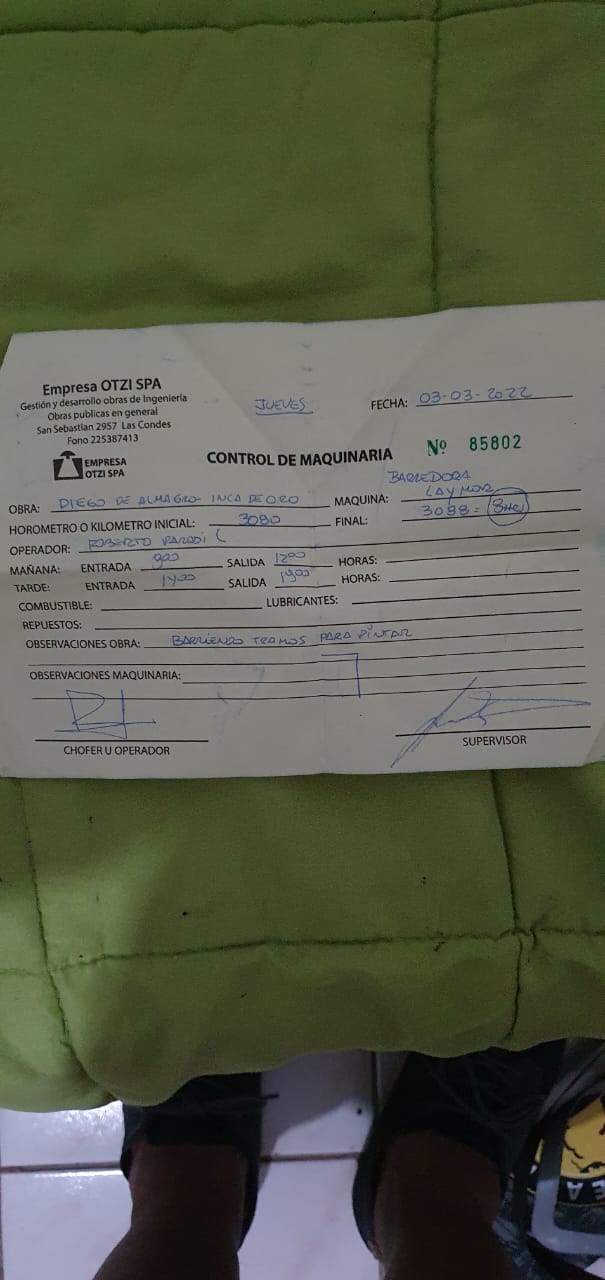 Empresa OTZI SPA
Gestión y desarrollo obras de Ingeniería
Obras publicas en general
San Sebastian 2957 Las Condes
Fono 225387413
EMPRESA
OTZI SPA
JUEVES
FECHA: 03-03-2022
CONTROL DE MAQUINARIA
Nº 85802
OBRA: DIEGO DE ALMAGRO- INCA DE ORO
MAQUINA: BARREDORA
LAYMOR
HOROMETRO O KILOMETRO INICIAL: 3080
FINAL: 3088 = 8HRS
OPERADOR: ROBERTO PARODI
MAÑANA: ENTRADA 900 SALIDA 1200 HORAS:
TARDE: ENTRADA 1400 SALIDA 1900 HORAS:
COMBUSTIBLE: LUBRICANTES:
REPUESTOS:
OBSERVACIONES OBRA: BARRIENDO TRAMOS PARA PINTAR
OBSERVACIONES MAQUINARIA:
CHOFER U OPERADOR
SUPERVISOR